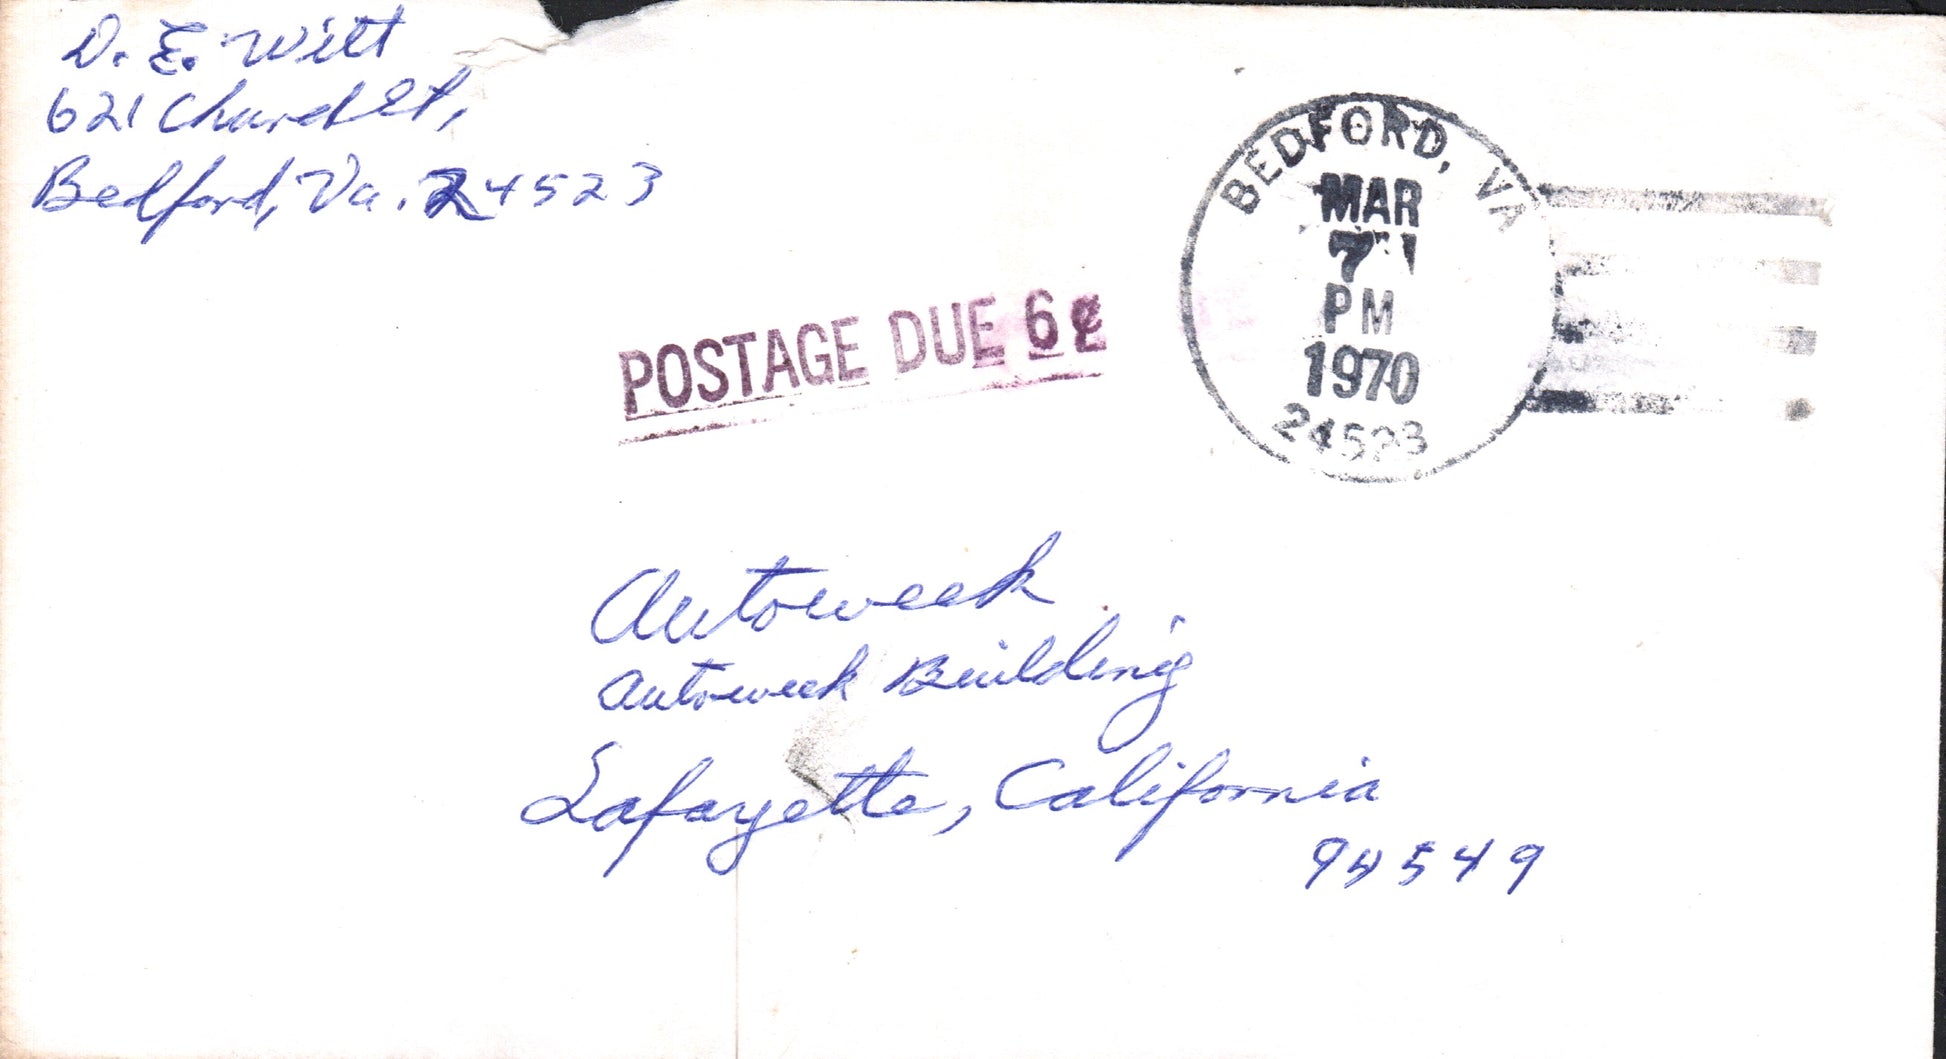 D. E. Witt
621 Church St,
Bedford, Va. 24523
BEDFORD, VA
MAR
7
PM
1970
24523
POSTAGE DUE 6¢
Autoweek
Autoweek Building
Lafayette, California
94549